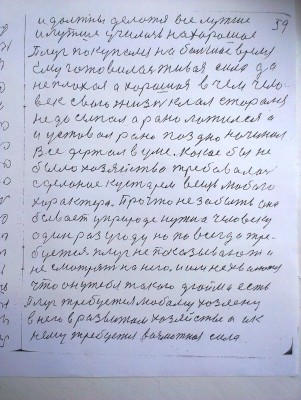 39
и должны делотся все лутше
и лутше училиз на хорошая
Плуг покупался на большее время
Ему готовилая живая сила да
не плохая а хорошая в чем чело-
век свою жизн клал старался
не до сыпал а рано ложился а
и уставал рано поздно начинал
Все держал в уме. Какое бы не
было хозяйство требовалаз
сделоное кустарем вещ любого
характера. Про что не забыть она
бывает упророде нужна человеку
один раз угоду но по всегда тре-
буется плуг не показывают и
не смотрят на него, и им не хвалют
что он у тебя такого дюйма есть
Плуг требуется любому хозяену
в него в развитом хозяйстве а и к
нему требуется важнотная сила